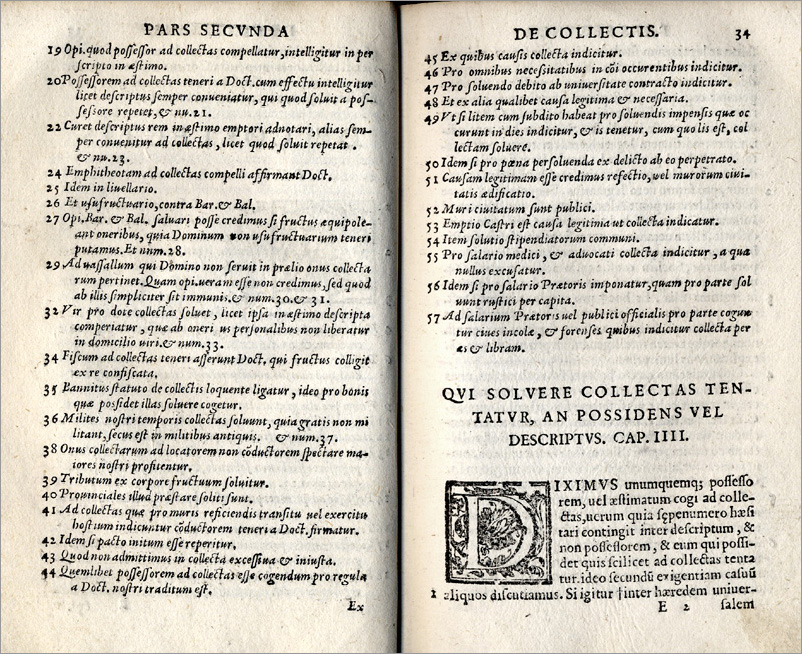 PARS SECVNDA
19 Opi. quod possessor ad collectas compellatur, intelligitur in per
scripto in æstimo.
20 Possessorem ad collectas teneri a Doct. cum effectu intelligitur
licet descriptus semper conueniatur, qui quod soluit a pos-
sessore repetet, & nu. 21.
22 Curet descriptus rem in æstimo emptori adnotari, alias sem-
per conuenitur ad collectas, licet quod soluit repetat.
& nu. 23.
24 Emphitheotam ad collectas compelli affirmant Doct.
25 Idem in liuellario.
26 Et usufructuario, contra Bar. & Bal.
27 Opi. Bar. & Bal. saluari posse credimus si fructus æquipole-
ant oneribus, quia Dominum non usufructuarium teneri
putamus. Et num. 28.
29 Ad uassallum qui Domino non seruit in prælio onus collecta
rum pertinet. Quam opi. ueram esse non credimus, sed quod
ab illis simpliciter sit immunis. & num. 30. & 31.
32 Vir pro dote collectas soluet, licet ipsa in æstimo descripta
comperiatur, quæ ab oneri us personalibus non liberatur
in domicilio uiri. & num. 33.
34 Fiscum ad collectas teneri asserunt Doct. qui fructus colligit
ex re confiscata.
35 Bannitus statuto de collectis loquente ligatur, ideo pro bonis
quæ possidet illas soluere cogetur.
36 Milites nostri temporis collectas soluunt, quia gratis non mi
litant, secus est in militibus antiquis. & num. 37.
38 Onus collectarum ad locatorem non cōductorem spectare ma-
iores nostri profitentur.
39 Tributum ex corpore fructuum soluitur.
40 Prouinciales illud præstare soliti sunt.
41 Ad collectas quæ pro muris reficiendis transitu uel exercitu
hostium indicuntur cōductorem teneri a Doct. firmatur.
42 Idem si pacto initum esse reperitur.
43 Quod non admittimus in collecta excessiua & iniusta.
44 Quemlibet possessorem ad collectas esse cogendum pro regula
a Doct. nostri traditum est.
Ex
DE COLLECTIS. 34
45 Ex quibus causis collecta indicitur.
46 Pro omnibus necessitatibus in cōi occurentibus indicitur.
47 Pro soluendo debito ab uniuersitate contracto indicitur.
48 Et ex alia qualibet causa legitima & necessaria.
49 Vt si litem cum subdito habeat pro soluendis impensis quæ oc
currunt in dies indicitur, & is tenetur, cum quo lis est, col
lectam soluere.
50 Idem si pro pœna persoluenda ex delicto ab eo perpetrato.
51 Causam legitimam esse credimus refectio, uel murorum ciui-
tatis ædificatio.
52 Muri ciuitatum sunt publici.
53 Emptio Castri est causa legitima ut collecta indicatur.
54 Item solutio stipendiatorum communi.
55 Pro salario medici, & aduocati collecta indicitur, a qua
nullus excusatur.
56 Idem si pro salario Prætoris imponatur, quam pro parte sol
uunt rustici per capita.
57 Ad salarium Prætoris uel publici officialis pro parte cogun
tur ciues incolæ, & forenses quibus indicitur collecta per
æs & libram.
QVI SOLVERE COLLECTAS TEN-
TATVR, AN POSSIDENS VEL
DESCRIPTVS. CAP. IIII.
DIXIMVS unumquemq; possesso
rem, uel æstimatum cogi ad colle-
ctas, uerum quia sępenumero hæsi
tari contingit inter descriptum, &
non possessorem, & eum qui possi-
det quis scilicet ad collectas tenea
tur. ideo secundū exigentiam casuū
1 aliquos discutiamus. Si igitur †inter hæredem uniuer-
E 2 salem